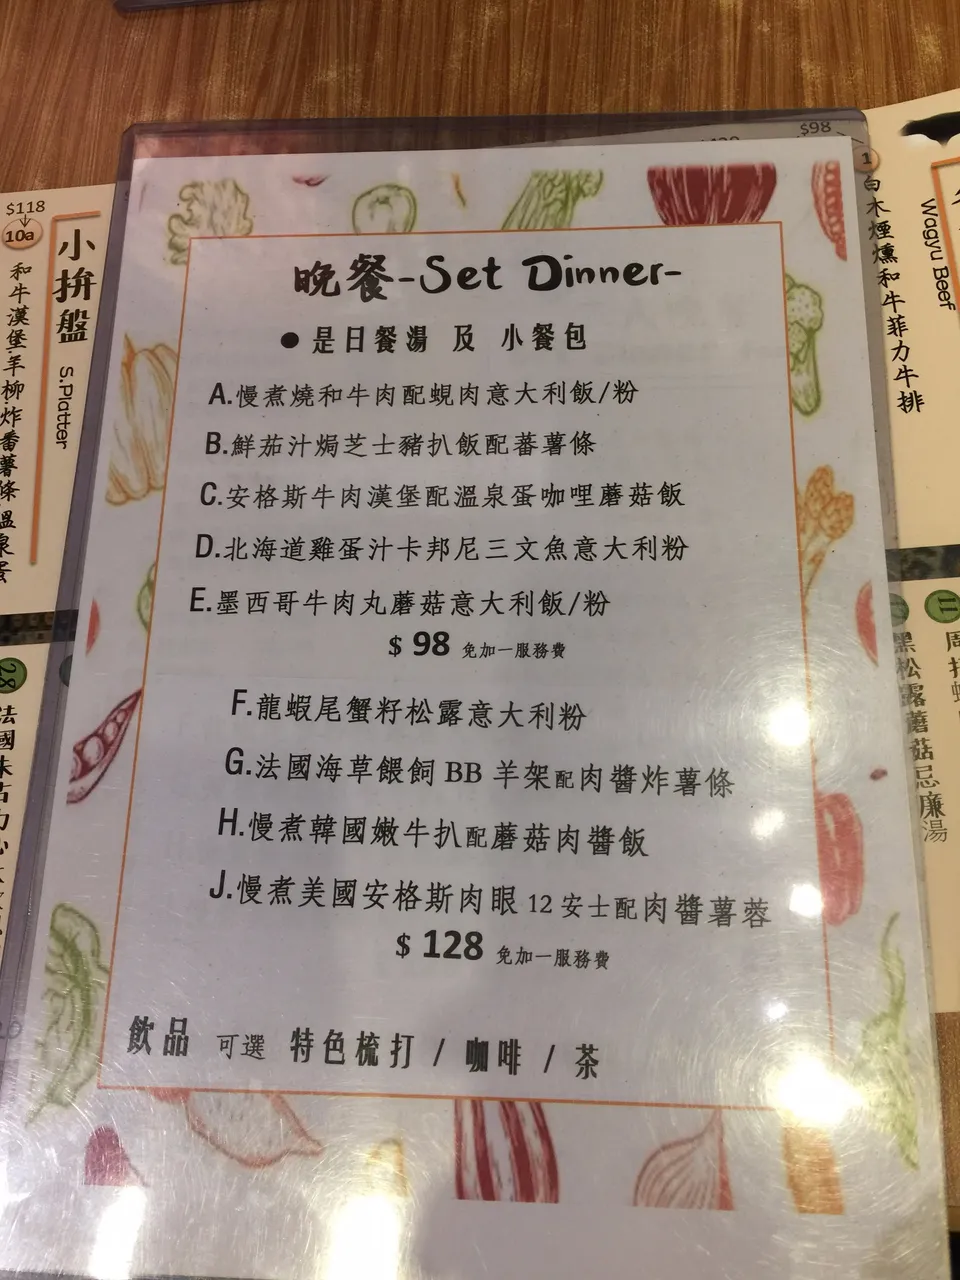 晚餐-Set Dinner-
●是日餐湯 及 小餐包
A.慢煮燒和牛肉配蜆肉意大利飯/粉
B.鮮茄汁焗芝士豬扒飯配蕃薯條
C.安格斯牛肉漢堡配溫泉蛋咖哩蘑菇飯
D.北海道雞蛋汁卡邦尼三文魚意大利粉
E.墨西哥牛肉丸蘑菇意大利飯/粉
$ 98 免加一服務費
F.龍蝦尾蟹籽松露意大利粉
G.法國海草餵飼 BB 羊架配肉醬炸薯條
H.慢煮韓國嫩牛扒配蘑菇肉醬飯
J.慢煮美國安格斯肉眼 12 安士配肉醬薯蓉
$ 128 免加一服務費
飲品 可選 特色梳打 / 咖啡 / 茶
$118
10a
小拚盤
S.Platter
和牛漢堡.羊柳.炸番薯條.溫泉蛋
28
$98
1
白木煙燻和牛菲力牛排
Wagyu Beef
黑松露蘑菇忌廉湯
11